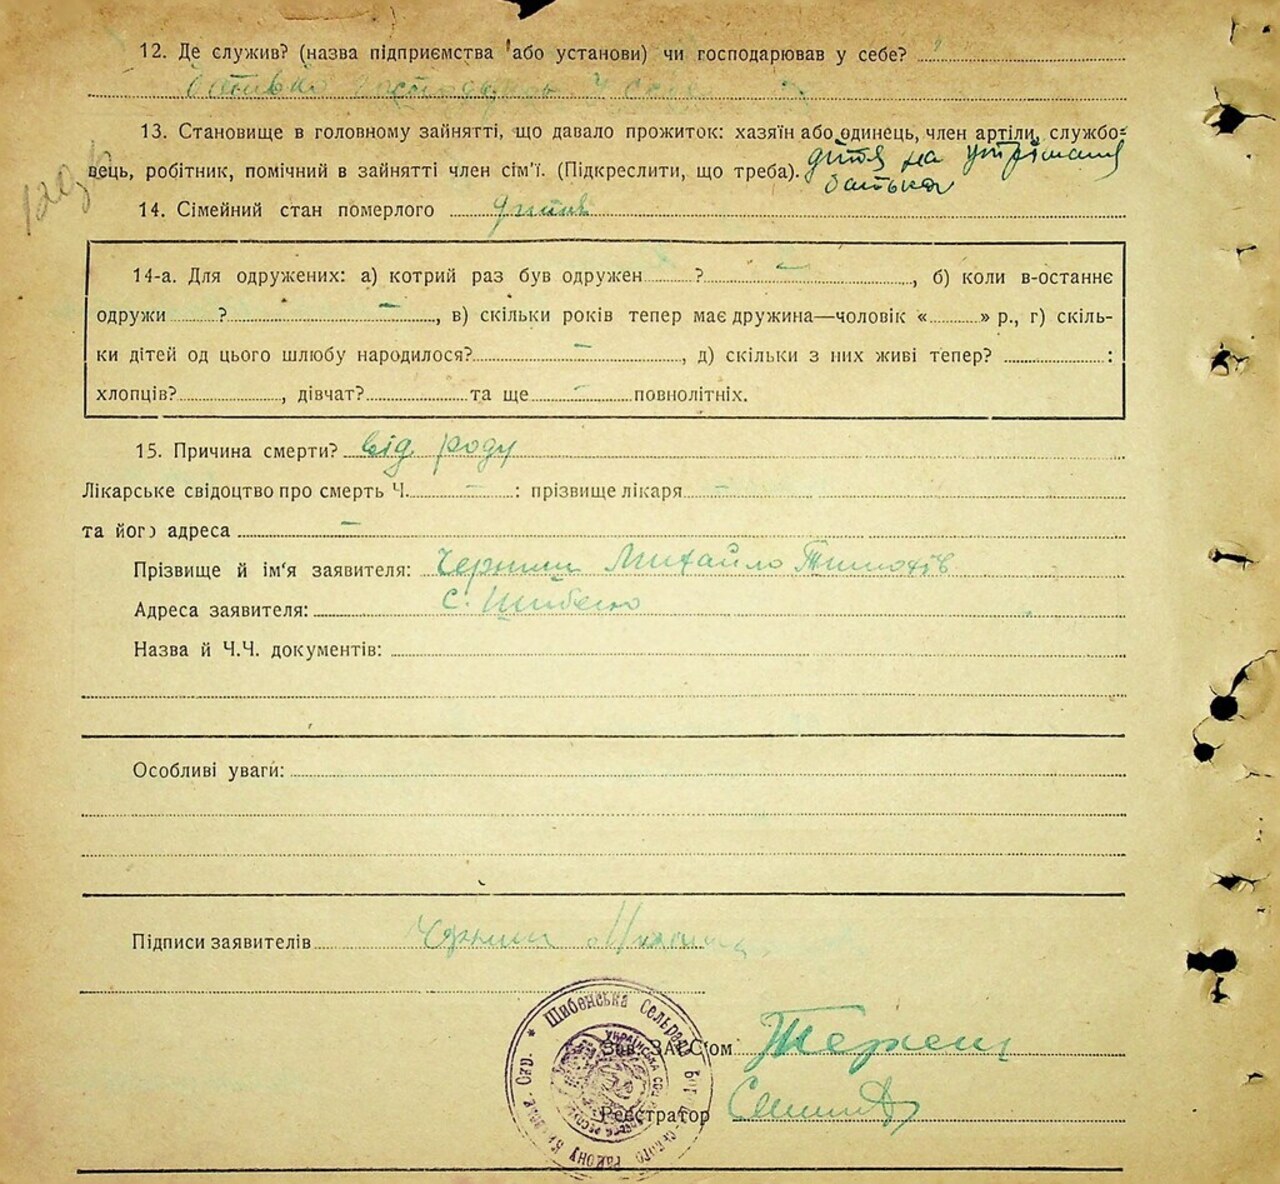 12. Де служив? (назва підприємства або установи) чи господарював у себе?
батько господарює у себе
13. Становище в головному зайнятті, що давало прожиток: хазяїн або одинець, член артіли, службо=
вець, робітник, помічний в зайнятті член сім'ї. (Підкреслити, що треба). дітя на утріманя
батька
14. Сімейний стан померлого дитя
14-а. Для одружених: а) котрий раз був одружен ? —, б) коли в-останнє
одружи ? —, в) скільки років тепер має дружина—чоловік «» р., г) скіль-
ки дітей од цього шлюбу народилося? —, д) скільки з них живі тепер? :
хлопців?, дівчат? та ще — повнолітніх.
15. Причина смерти? від роду
Лікарське свідоцтво про смерть Ч. — : прізвище лікаря —
та його адреса —
Прізвище й ім'я заявителя: Черниш Михайло Тимохів
Адреса заявителя: с. Шибено
Назва й Ч.Ч. документів:
Особливі уваги:
Підписи заявителів Черниш
* Шибенська Сельрада
Зав. ЗАГС'ом
Реєстратор